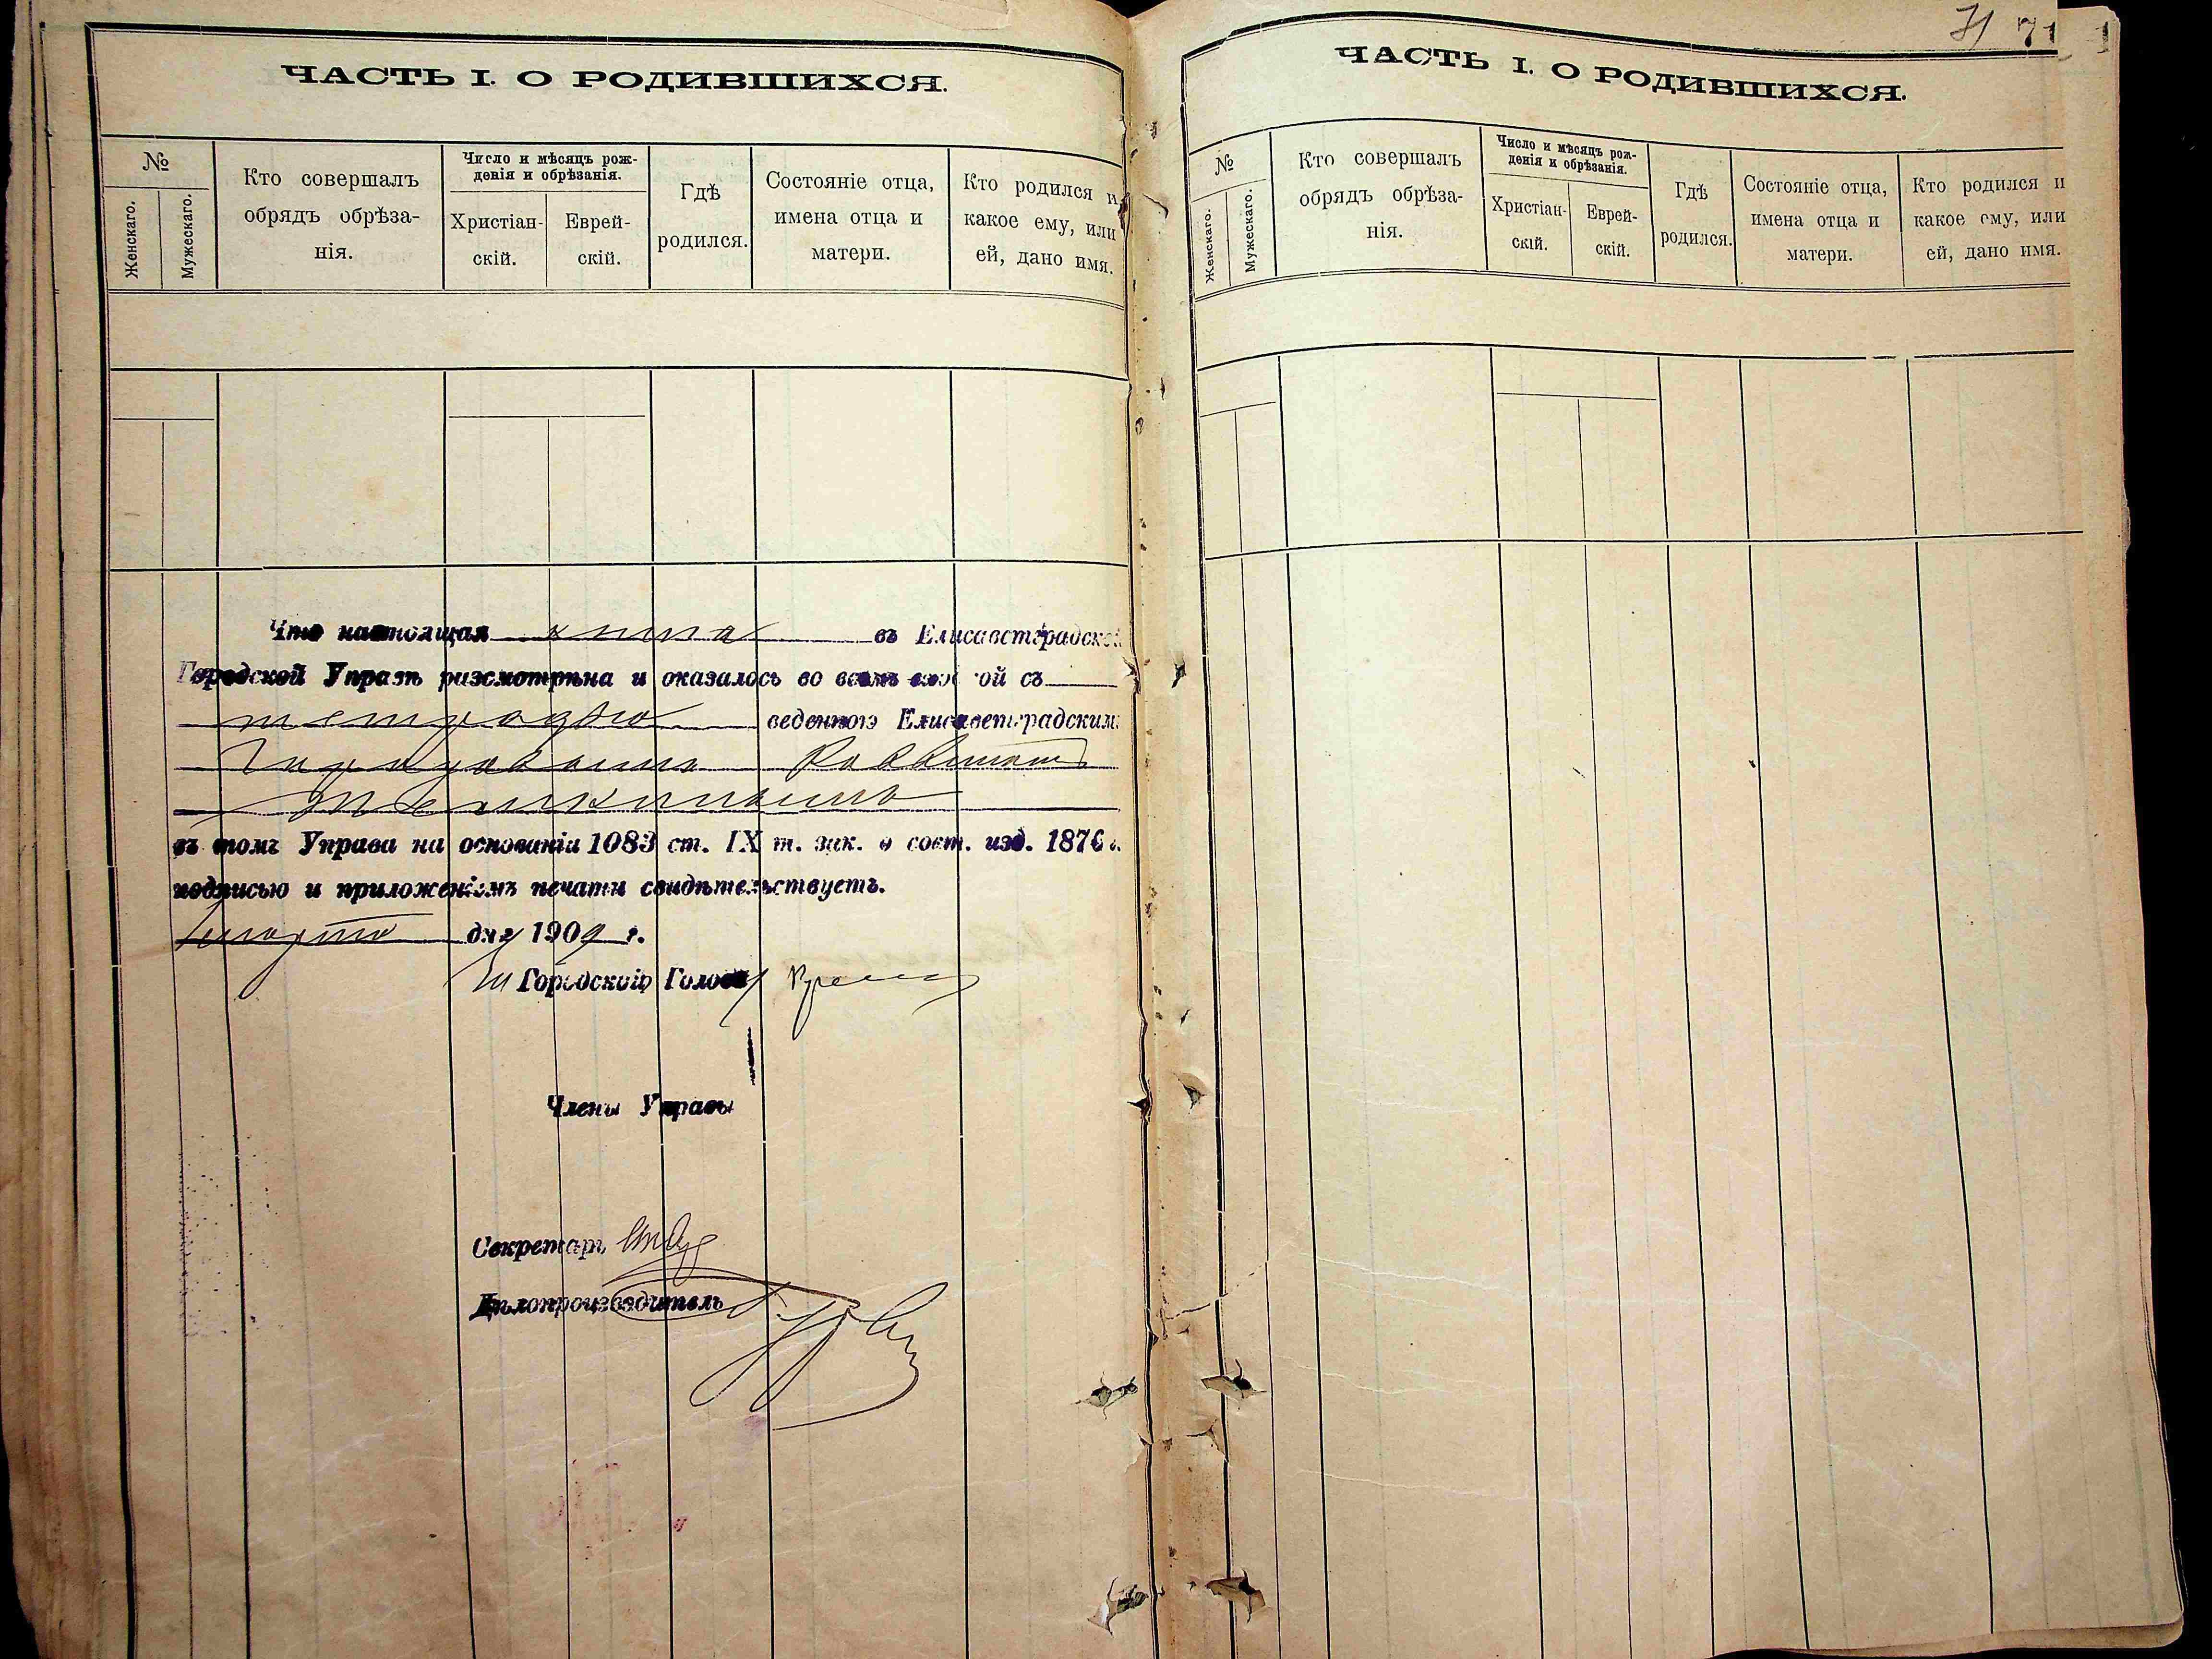 ЧАСТЬ I. О РОДИВШИХСЯ.
№
Женскаго.
Мужескаго.
Кто совершалъ
обрядъ обрѣза-
нія.
Число и мѣсяцъ рож-
денія и обрѣзанія.
Христіан-
скій.
Еврей-
скій.
Гдѣ
родился.
Состояніе отца,
имена отца и
матери.
Кто родился и
какое ему, или
ей, дано имя.
Что настоящая книга въ Елисаветградской
Городской Управѣ разсмотрѣна и оказалось во всемъ ой съ
тетрадью веденною Елисаветградскимъ
Городовымъ Раввиномъ
въ томъ Управа на основаніи 1083 ст. IX т. зак. о сост. изд. 1876 г.
подписью и приложеніемъ печати свидѣтельствуетъ.
марта дня 1909 г.
Городской Голова
Члены Управы
Секретарь
Дѣлопроизводитель
71 71
ЧАСТЬ I. О РОДИВШИХСЯ.
№
Женскаго.
Мужескаго.
Кто совершалъ
обрядъ обрѣза-
нія.
Число и мѣсяцъ рож-
денія и обрѣзанія.
Христіан-
скій.
Еврей-
скій.
Гдѣ
родился.
Состояніе отца,
имена отца и
матери.
Кто родился и
какое ему, или
ей, дано имя.